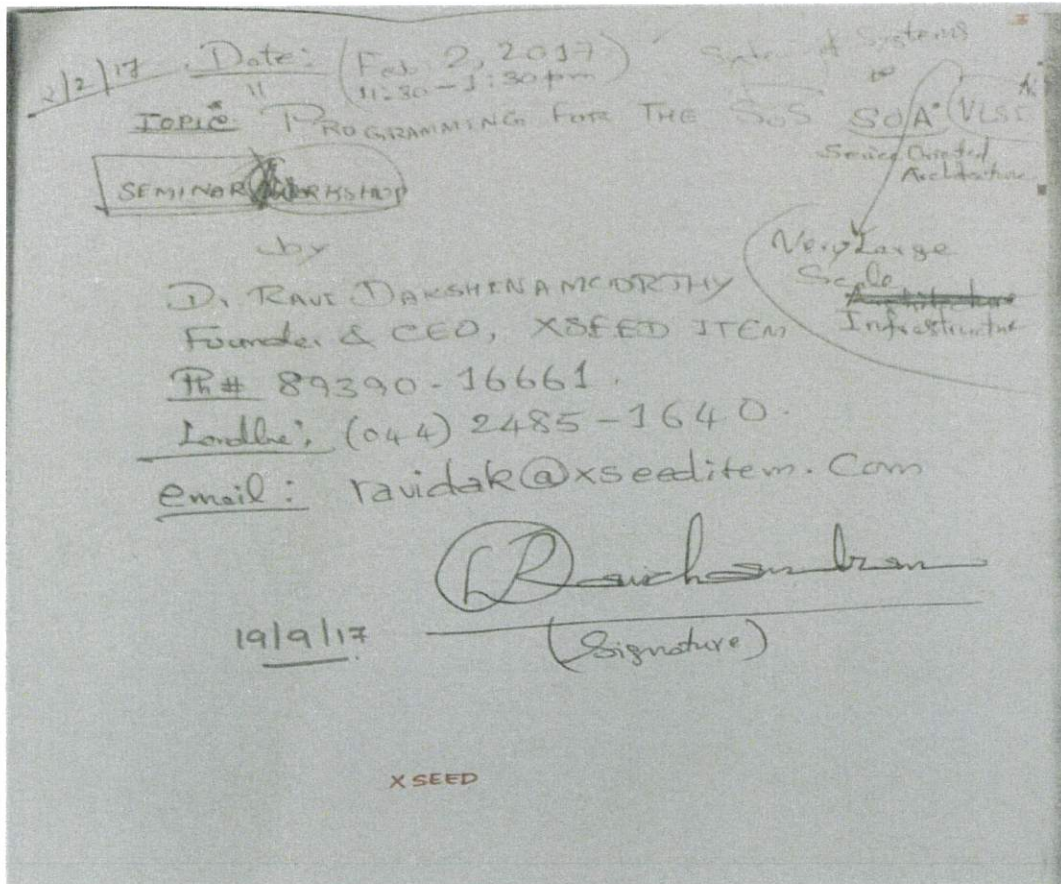 2/2/17 Date: (Feb 2, 2017
11:30-1:30pm)
System of Systems
TOPIC: PROGRAMMING FOR THE SoS SOA (VLSI
Service Oriented
Architecture
SEMINAR WORKSHOP
by
Very Large
Scale
Infrastructure
D. RAVI DAKSHINAMOORTHY
Founder & CEO, XSEED ITEM
Ph# 89390-16661.
Landline: (044) 2485-1640.
email: ravidak@xseeditem.com
Ravichandran
19/9/17
(Signature)
X SEED